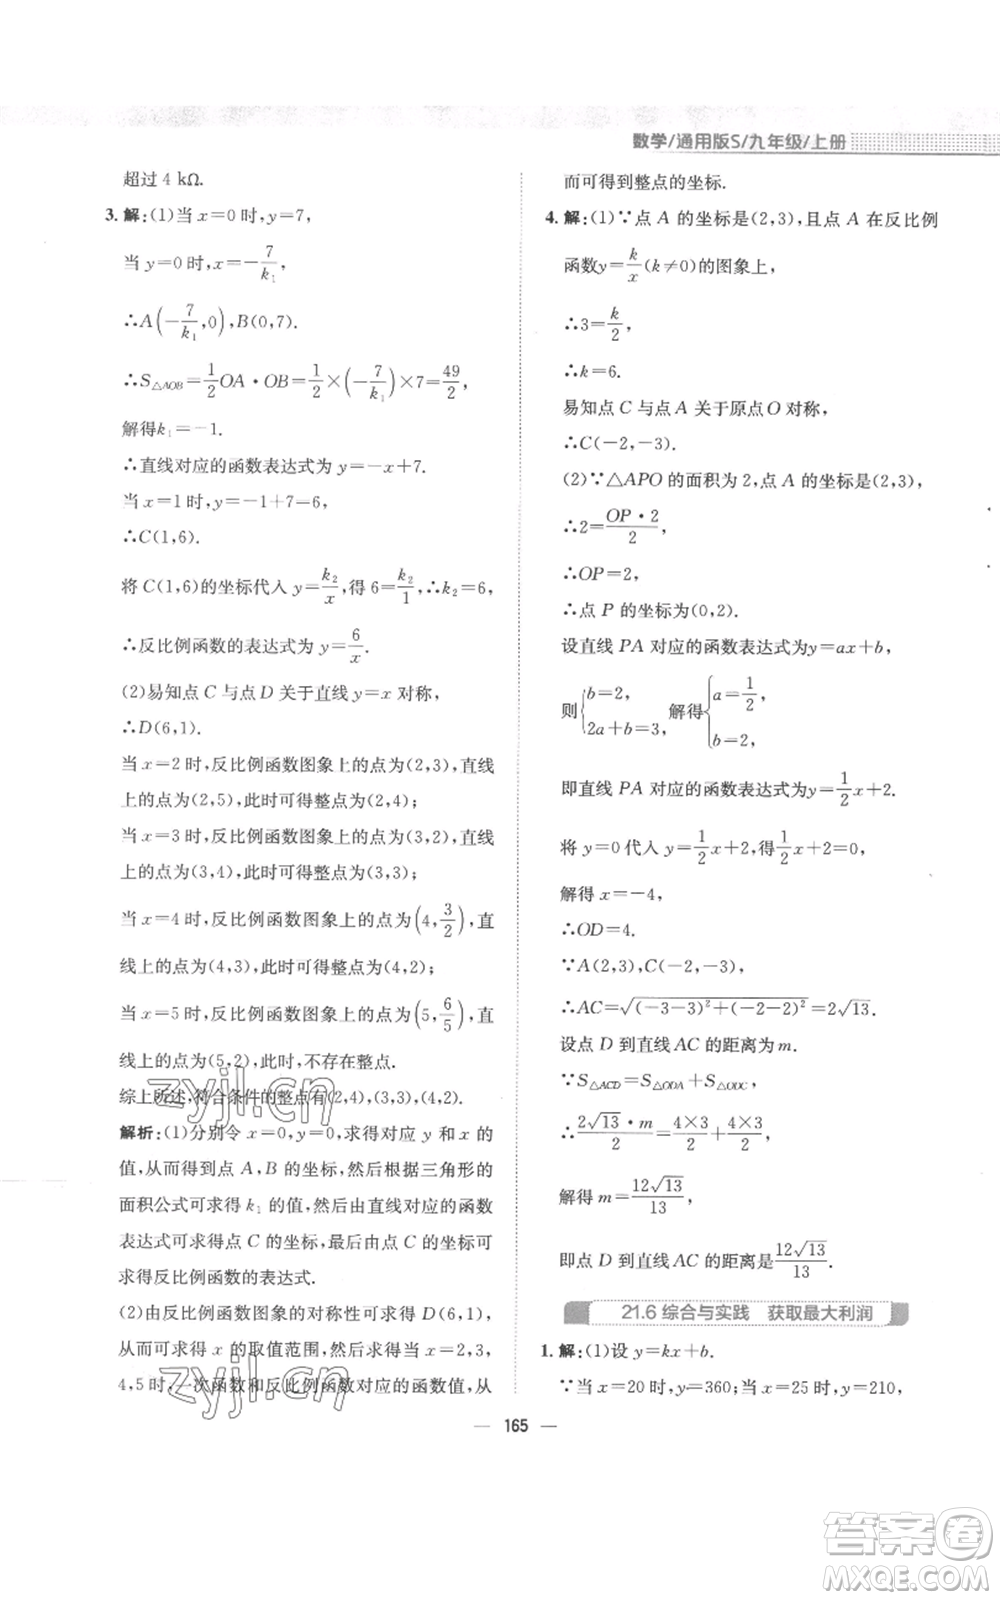 数学/通用版S/九年级/上册
超过 4 kΩ.
3. 解:(1)当 x=0时,y=7,
当 y=0时,x=-7/k₁,
∴A(-7/k₁,0),B(0,7).
∴S△AOB=1/2OA·OB=1/2×(-7/k₁)×7=49/2,
解得k₁=-1.
∴直线对应的函数表达式为 y=-x+7.
当 x=1时,y=-1+7=6,
∴C(1,6).
将 C(1,6)的坐标代入 y=k₂/x,得 6=k₂/1,∴k₂=6,
∴反比例函数的表达式为 y=6/x.
(2)易知点 C 与点 D 关于直线 y=x 对称,
∴D(6,1).
当 x=2 时,反比例函数图象上的点为(2,3),直线
上的点为(2,5),此时可得整点为(2,4);
当 x=3 时,反比例函数图象上的点为(3,2),直线
上的点为(3,4),此时可得整点为(3,3);
当 x=4 时,反比例函数图象上的点为(4,3/2),直
线上的点为(4,3),此时可得整点为(4,2);
当 x=5 时,反比例函数图象上的点为(5,6/5),直
线上的点为(5,2),此时,不存在整点.
综上所述,符合条件的整点有(2,4),(3,3),(4,2).
解析:(1)分别令 x=0,y=0,求得对应 y 和 x 的
值,从而得到点 A,B 的坐标,然后根据三角形的
面积公式可求得 k₁ 的值,然后由直线对应的函数
表达式可求得点 C 的坐标,最后由点 C 的坐标可
求得反比例函数的表达式.
(2)由反比例函数图象的对称性可求得 D(6,1),
从而可求得 x 的取值范围,然后将 x=2,3,
4,5时,一次函数和反比例函数对应的函数值,从
而可得到整点的坐标.
4. 解:(1)∵点 A 的坐标是(2,3),且点 A 在反比例
函数y=k/x(k≠0)的图象上,
∴3=k/2,
∴k=6.
易知点 C 与点 A 关于原点O 对称,
∴C(-2,-3).
(2)∵△APO 的面积为 2,点 A 的坐标是(2,3),
∴2=OP·2/2,
∴OP=2,
∴点 P 的坐标为(0,2).
设直线 PA 对应的函数表达式为y=ax+b,
则{b=2, 2a+b=3, 解得{a=1/2, b=2,
即直线 PA 对应的函数表达式为y=1/2x+2.
将 y=0代入 y=1/2x+2,得1/2x+2=0,
解得 x=-4,
∴OD=4.
∵A(2,3),C(-2,-3),
∴AC=√((-3-3)²+(-2-2)²)=2√13.
设点 D 到直线 AC 的距离为 m.
∵S△ACD=S△ODA+S△ODC,
∴2√13·m/2=4×3/2+4×3/2,
解得 m=12√13/13,
即点 D 到直线 AC 的距离是12√13/13.
21.6 综合与实践 获取最大利润
1. 解:(1)设 y=kx+b.
∵当 x=20 时,y=360;当 x=25 时,y=210,
— 165 —
zyjl.cn
zyjl.cn
答案卷
MXQE.COM